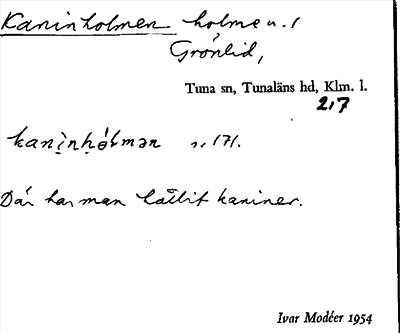 Kaninholmen holme u. /
Grönlid,
Tuna sn, Tunaläns hd, Klm. l.
2,7
kanìnhól·mən
Där har man hållit kaniner.
Ivar Modéer 1954